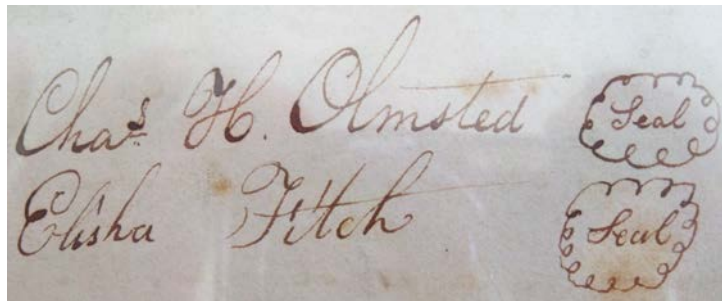 Chas. H. Olmsted Seal
Elisha Fitch Seal